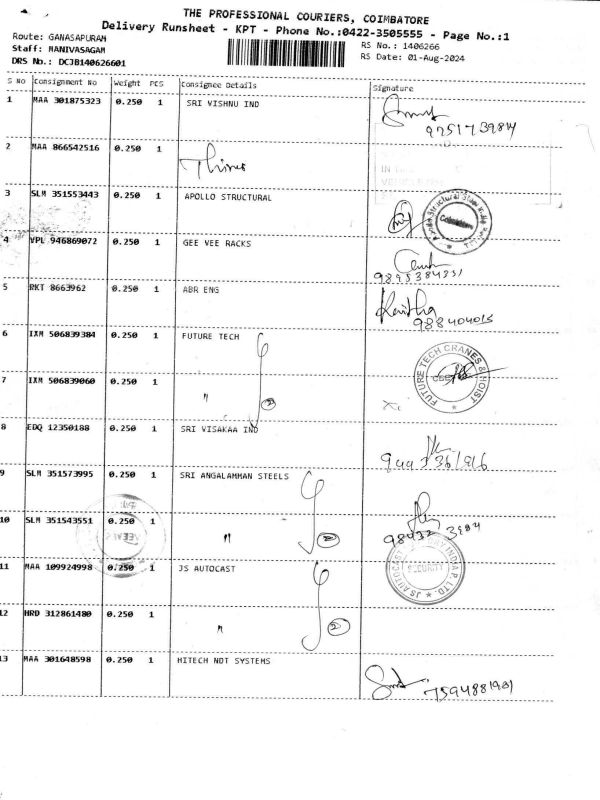 THE PROFESSIONAL COURIERS, COIMBATORE
Delivery Runsheet - KPT - Phone No.:0422-3505555 - Page No.:1
Route: GANASAPURAM
Staff: MANIVASAGAM
DRS No.: DCJB140626601
RS No.: 1406266
RS Date: 01-Aug-2024
S No Consignment No Weight PCS Consignee Details Signature
1 MAA 301875323 0.250 1 SRI VISHNU IND
2 MAA 866542516 0.250 1
3 SLM 351553443 0.250 1 APOLLO STRUCTURAL
4 VPL 946869072 0.250 1 GEE VEE RACKS
5 RKT 8663962 0.250 1 ABR ENG
6 IXM 506839384 0.250 1 FUTURE TECH
FUTURE TECH CRANES & HOIST
7 IXM 506839060 0.250 1 " 2
8 EDQ 12350188 0.250 1 SRI VISAKAA IND
9 SLM 351573995 0.250 1 SRI ANGALAMMAN STEELS
10 SLM 351543551 0.250 1 " 2
11 MAA 109924998 0.250 1 JS AUTOCAST
JS AUTOCAST INDIA P. LTD.
SECURITY
12 HRD 312861480 0.250 1 " 2
13 MAA 301648598 0.250 1 HITECH NDT SYSTEMS